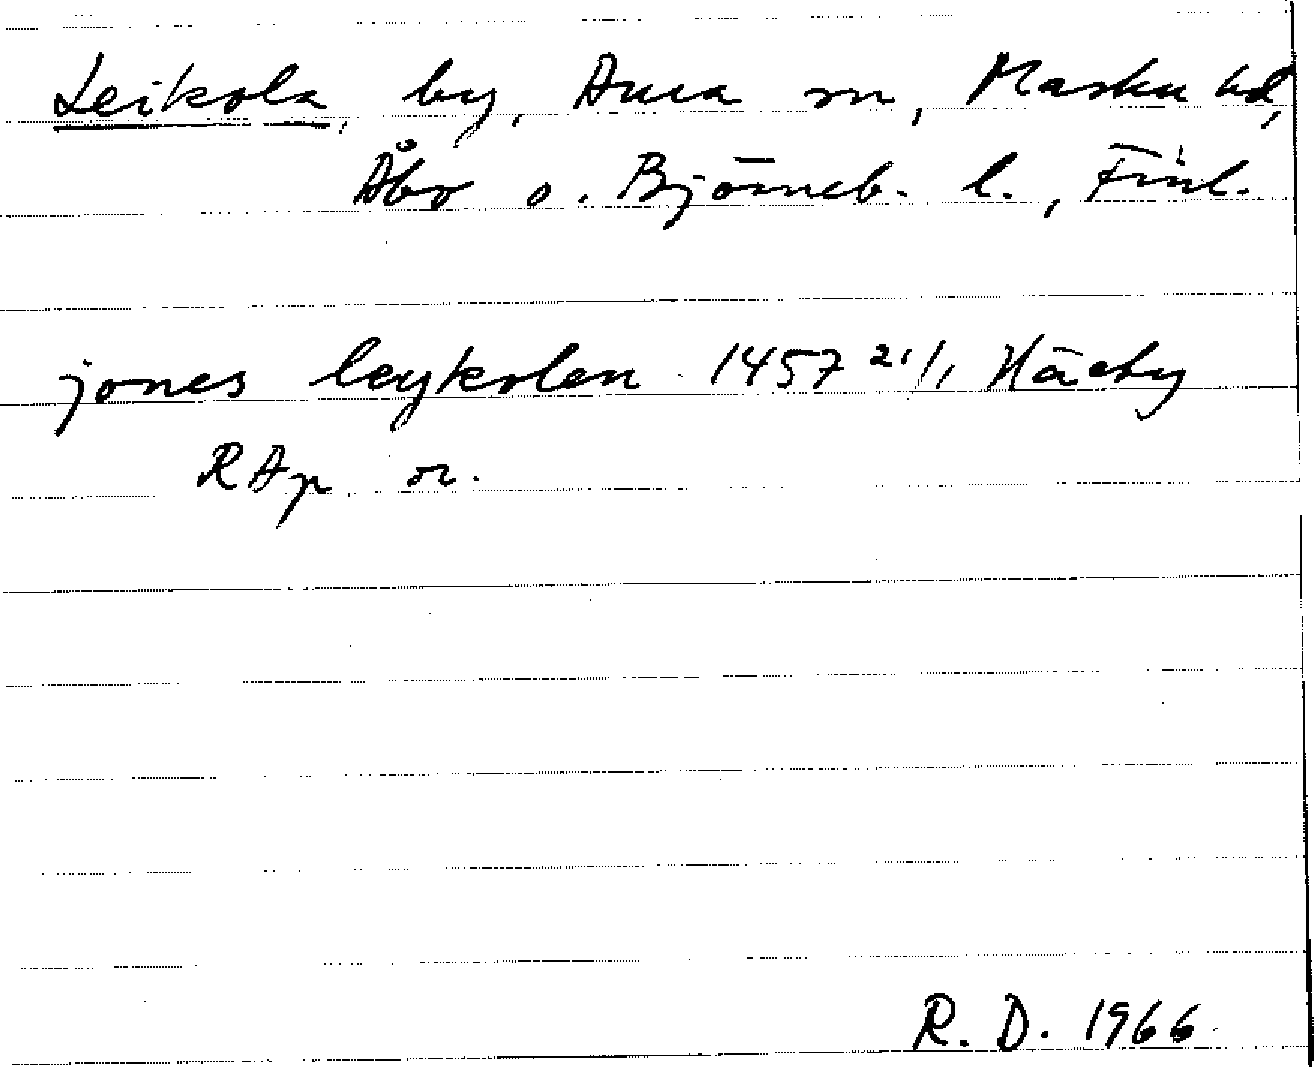 Leikola, by, Aura sn, Masku hd,
Åbo o. Björneb. l., Finl.
jones leykolen 1457 21/1 Häeby
RAp or.
R. D. 1966